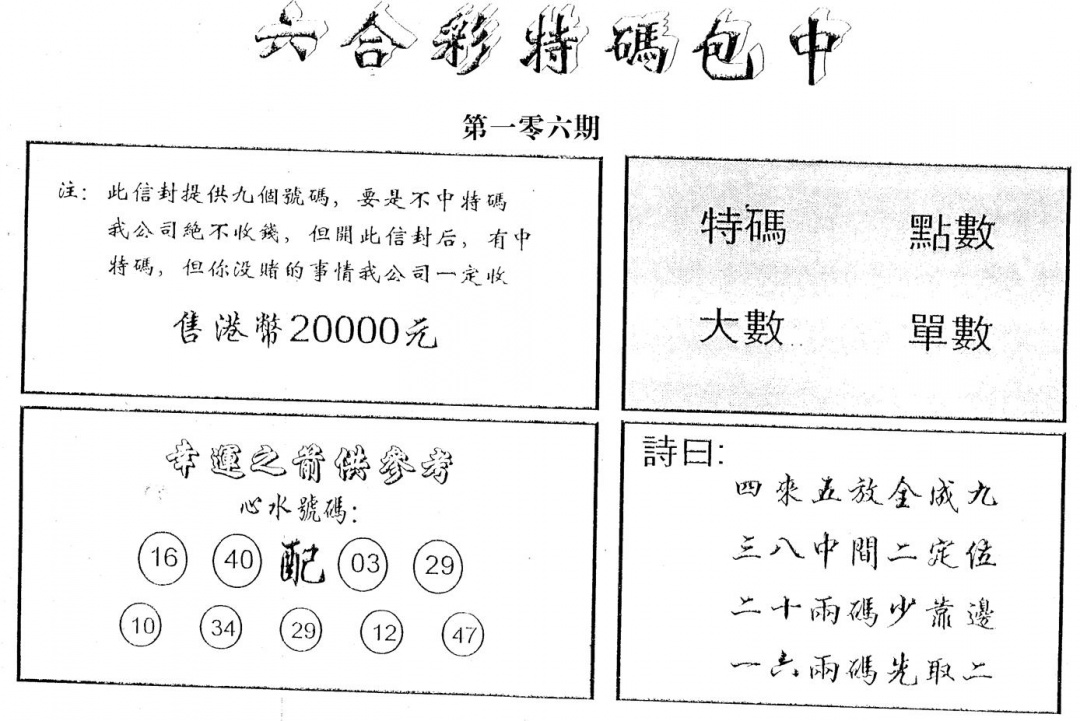 六合彩特碼包中
第一零六期
注：此信封提供九個號碼，要是不中特碼
我公司絕不收錢，但開此信封后，有中
特碼，但你没賭的事情我公司一定收
售港幣20000元
特碼 點數
大數 單數
幸運之箭供參考
心水號碼：
16 40 配 03 29
10 34 29 12 47
詩曰：
四來五放金成九
三八中間二定位
二十兩碼少靠邊
一六兩碼先取二